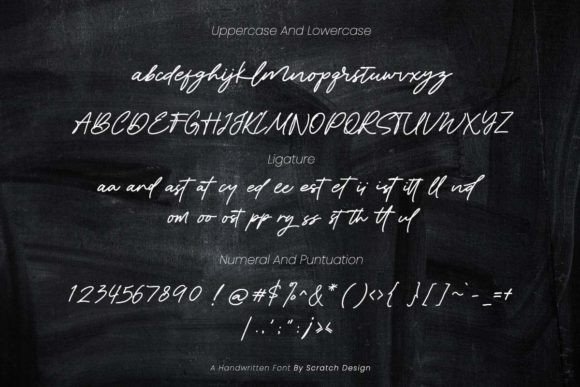 Uppercase And Lowercase
abcdefghijklmnopqrstuvwxyz
ABCDEFGHIJKLMNOPQRSTUVWXYZ
Ligature
aa and ast at cy ed ee est et ii ist itt ll nd
om oo ost pp ry ss st th tt ul
Numeral And Puntuation
1234567890 ! @#$%^&* ()<>{ }[]~`-_=+
|.,';":¡»«
A Handwritten Font By Scratch Design